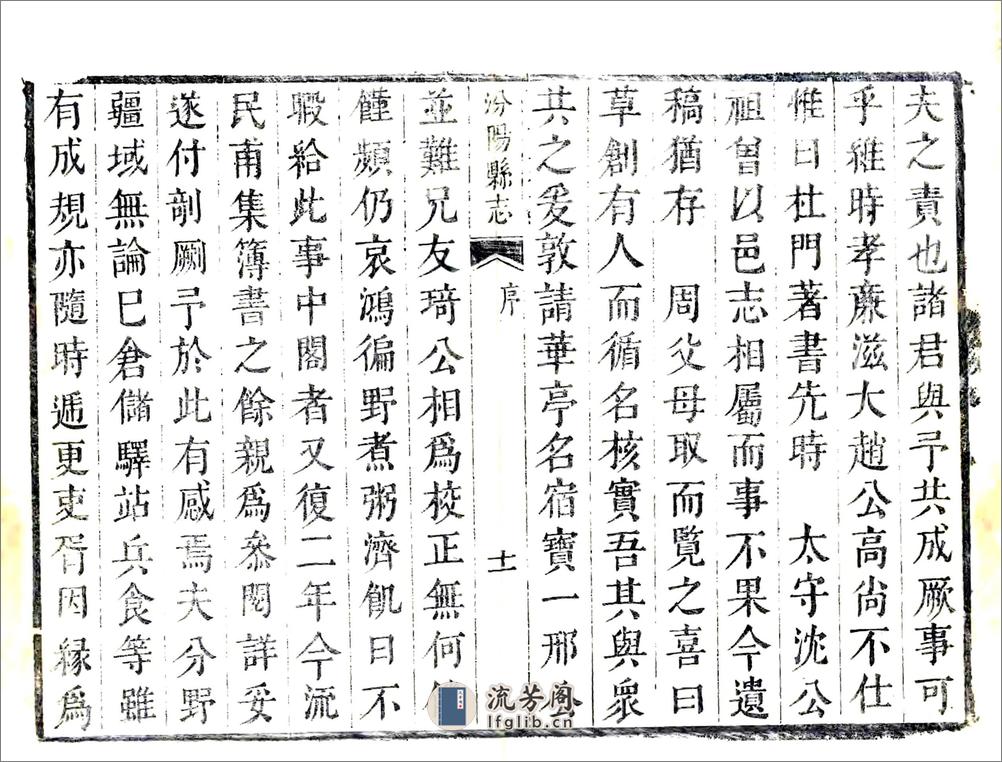 夫之責也諸君與予共成厥事可
乎維時孝亷滋大趙公高尙不仕
惟日杜門著書先時 太守沈公
祖曾以邑志相屬而事不果今遺
稿猶存 周父母取而覽之喜曰
草創有人而循名核實吾其與衆
共之爰敦請華亭名宿寶一邢
汾陽縣志 序 十一
並難兄友琦公相爲校正無何
饉頻仍哀鴻徧野煮粥濟飢日不
暇給此事中閣者又復二年今流
民甫集簿書之餘親爲叅閱詳妥
遂付剞劂予於此有感焉夫分野
疆域無論已倉儲驛站兵食等雖
有成規亦隨時遞更吏胥因緣爲
流芳阁
lfglib.cn